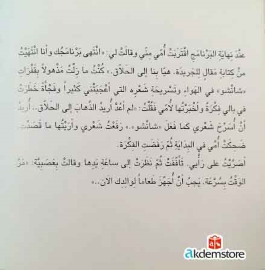 عِنْدَ نِهايَةِ البَرْنامَجِ اقْتَرَبَتْ أُمّي مِنّي وقالَتْ لي: «انْتَهى بَرْنامَجُكِ وأنا انْتَهَيْتُ
مِنْ كِتابَةِ مَقالٍ لِلْجَريدَةِ. هَيّا بِنا إلى الحَلّاقِ.» كُنْتُ ما زِلْتُ مَذْهولاً بِقَفَزاتِ
«شانْشو» في الهَواءِ وتَسْريحَةِ شَعْرِهِ التي أعْجَبَتْني كَثيراً وفَجْأةً خَطَرَتْ
في بالي فِكْرَةٌ وأخْبَرْتُها لِأُمّي فَقُلْتُ: «لم أعُدْ أُريدُ الذَّهابَ إلى الحَلّاقِ.. أُريدُ
أنْ أُسَرِّحَ شَعْري كما فَعَلَ «شانْشو».. رَفَعْتُ شَعْري وأرَيْتُها ما قَصَدْتُ.
ضَحِكَتْ أُمّي في البِدايَةِ ثُمَّ رَفَضَتِ الفِكْرَةَ.
أصْرَرْتُ على رَأْيي. تَأَفَّفَتْ ثُمَّ نَظَرَتْ إلى ساعَةِ يَدِها وقالَتْ بِعَصَبِيَّةٍ:
الوَقْتُ بِسُرْعَةٍ. يَجِبُ أنْ أُجَهِّزَ طَعاماً لِوالِدِكَ الآنَ..»
akdemstore